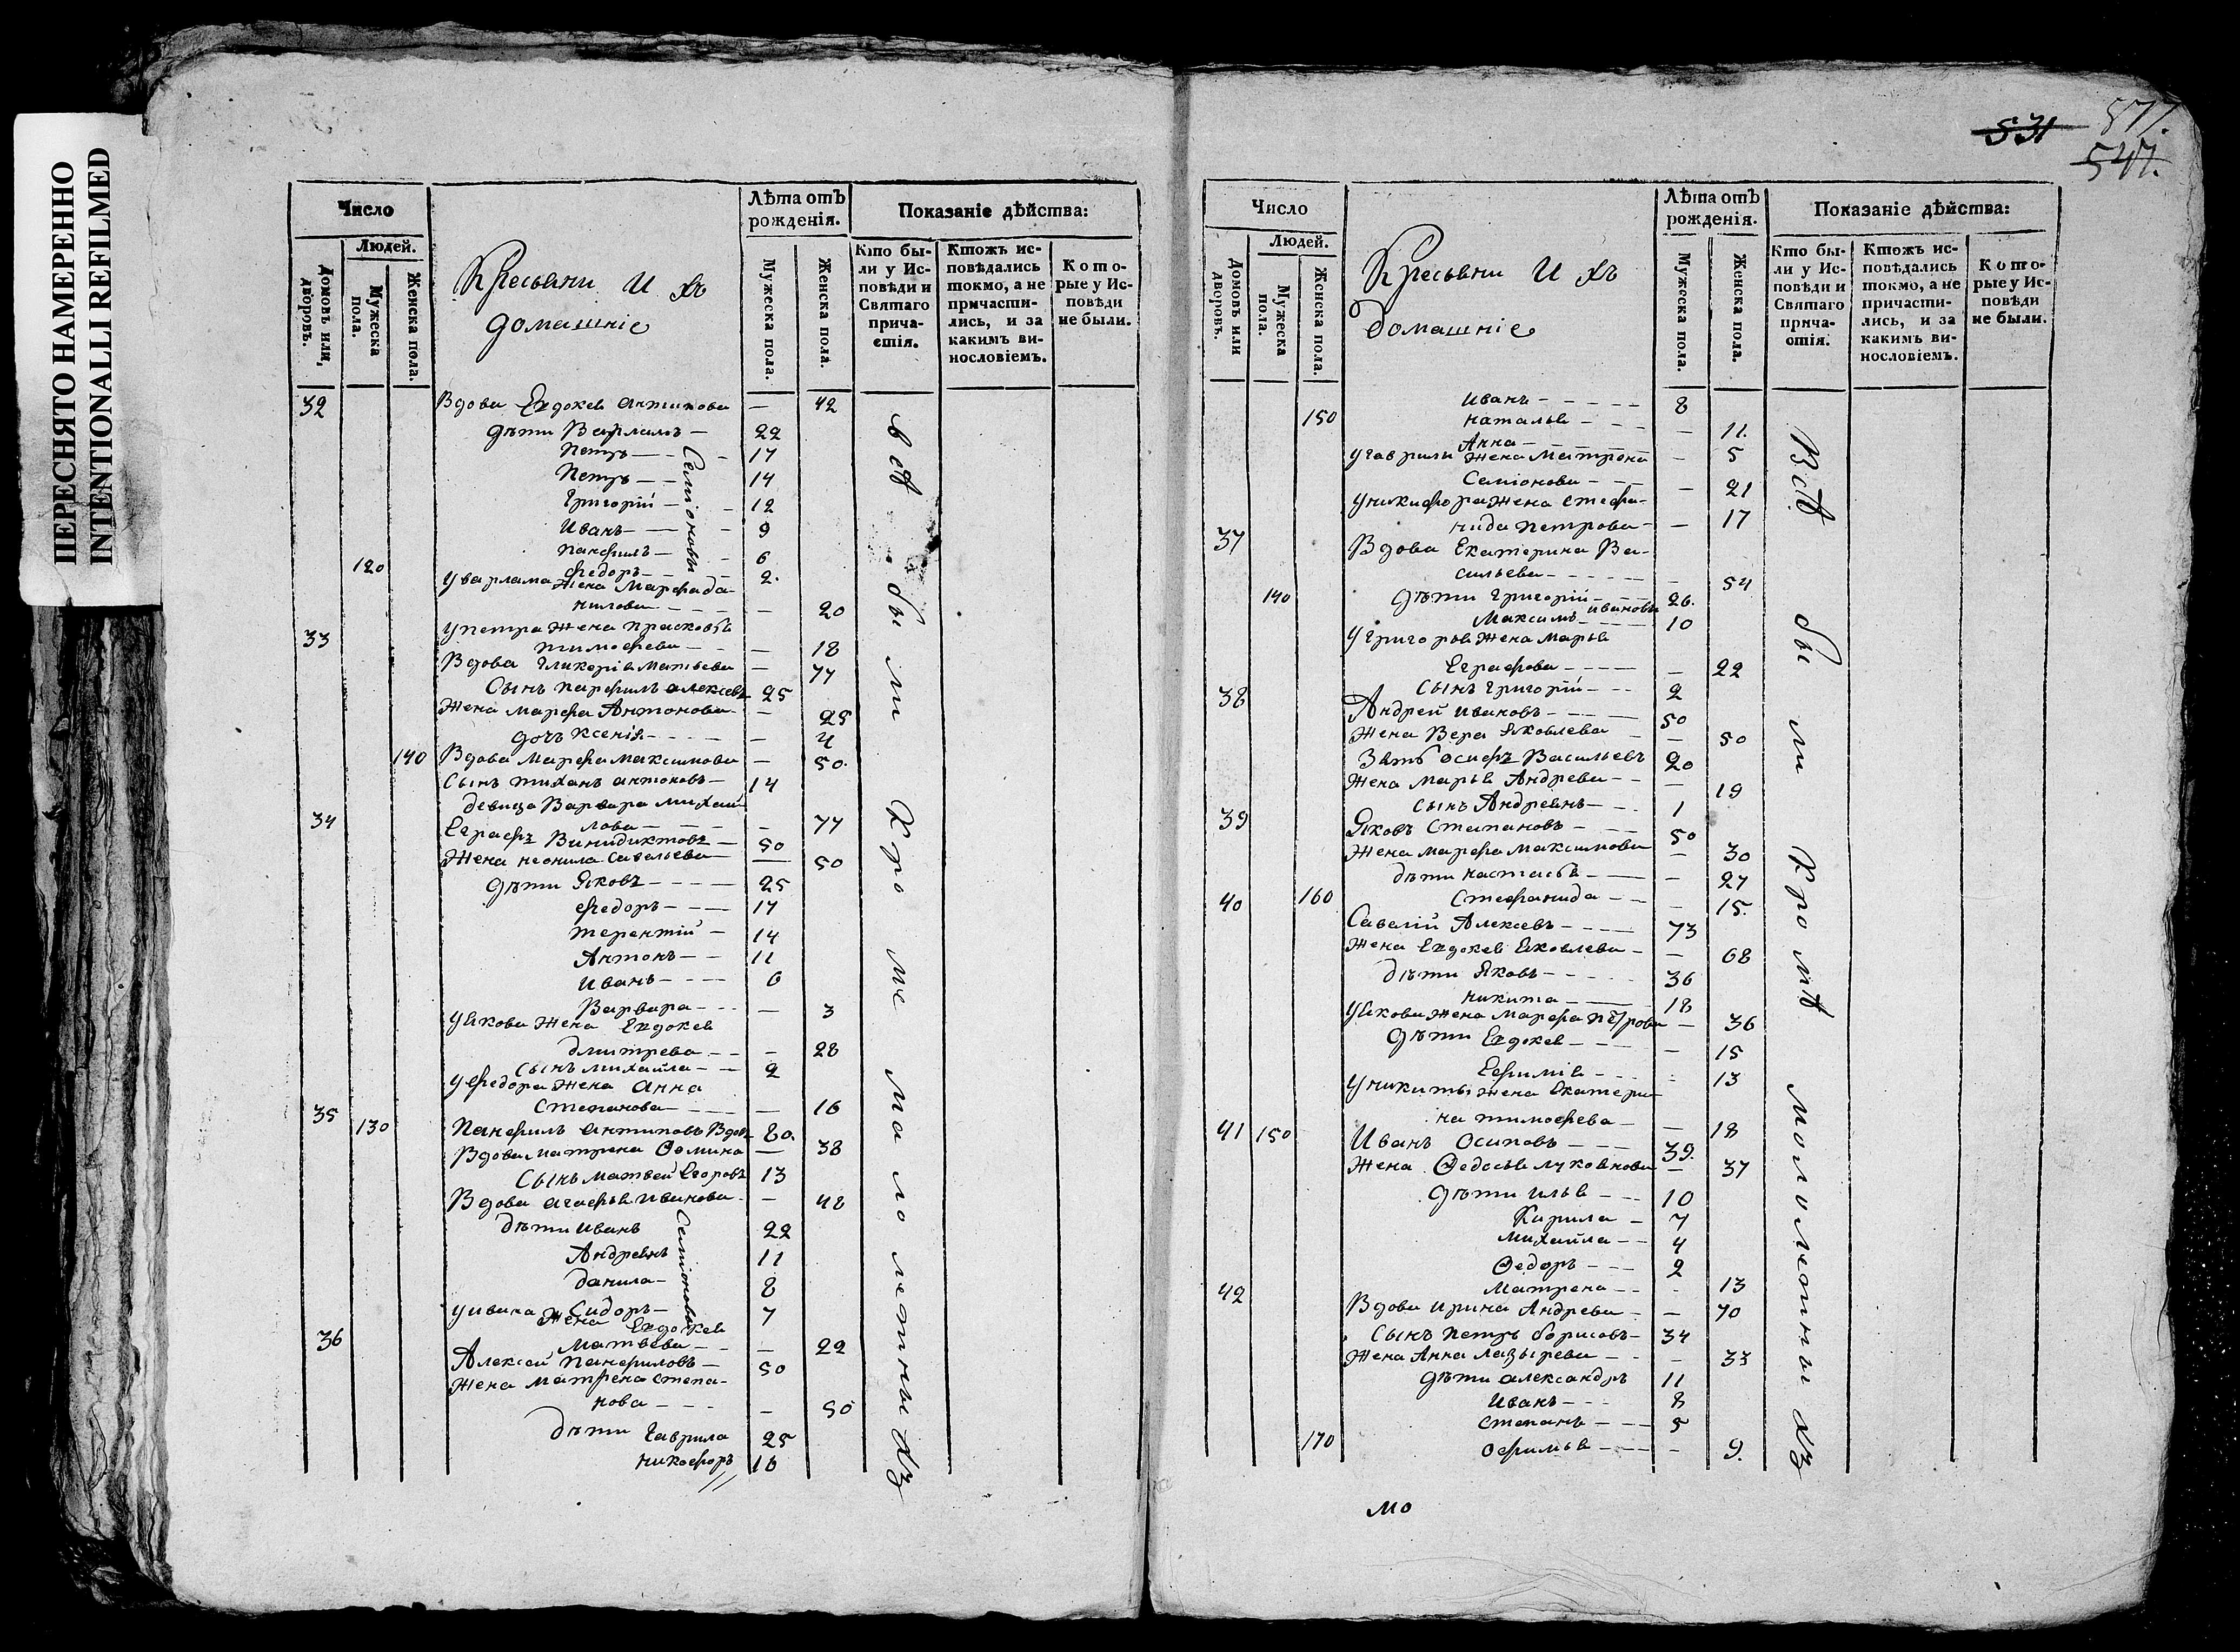 ПЕРЕСНЯТО НАМЕРЕННО
INTENTIONALLI REFILMED
Число
Людей.
Домовъ или дворовъ.
Мужеска пола.
Женска пола.
Кресьяни И хъ
домашніе
Лѣта отъ рожденія.
Мужеска пола.
Женска пола.
Показаніе дѣйства:
Кто были у Исповѣди и Святаго причастія.
Ктожъ исповѣдались токмо, а не причастились, и за какимъ винословіемъ.
Которые у Исповѣди не были.
32 Вдова Евдокея антипова — 42
дѣти Варламъ — 22
Петръ — 17
Петръ — 14
Григорій — 12
Иванъ — 9
панфилъ — 6
120 Федоръ — 2.
Семіоновы
уварлама Жена Марфа да-
нилова — 20
упетра Жена прасковья
тимофева — 18
33 Вдова Гликерія Матвева — 77
Сынъ парфилъ алексевъ 25
Жена марфа Антонова — 25
дочь Ксенія — 4
140 Вдова Марфа максимова — 50.
Сынъ тиханъ антоновъ — 14
девица Варвара михай-
лова — 77
34 Евграфъ Винидиктовъ — 50
Жена неонила савельева — 50
дѣти Яковъ — 25
федоръ — 17
терентій — 14
Антонъ — 11
иванъ — 6
Варвара — 3
уякова Жена Евдокея
дмитрева — 28
сынъ михайла — 2
уфедора Жена анна
Степанова — 16
35 130 Панфилъ антиповъ Вдов 80.
Вдова матрена Фомина — 38
Сынъ матвей Егоровъ 13
Вдова агафья иванова — 48
дѣти иванъ 22
Андреянъ 11
данила — 8
Сидоръ — 7
Семіоновы
уивана Жена Евдокея
Матвева — 22
36 Алексей панфиловъ — 50
Жена матрена степа-
нова — 50
дѣти гаврила 25
никофоръ 18
всѣ были Кроме малолетныхъ
531 877.
547.
Число
Людей.
Домовъ или дворовъ.
Мужеска пола.
Женска пола.
Кресьяни И хъ
домашніе
Лѣта отъ рожденія.
Мужеска пола.
Женска пола.
Показаніе дѣйства:
Кто были у Исповѣди и Святаго причастія.
Ктожъ исповѣдались токмо, а не причастились, и за какимъ винословіемъ.
Которые у Исповѣди не были.
иванъ — 8
150 наталья — 11.
Анна — 5
угаврили Жена Матрена
Семіонова — 21
уникифора Жена стефа-
нида петрова — 17
37 Вдова Екатерина Ва-
сильева — 54
140 дѣти григорій — 26.
Максимъ — 10
ивановы
Угригорья Жена марья
Евграфова — 22
сынъ григорій — 2
38 Андрей ивановъ — 50
Жена Вера Яковлева — 50
Зять осифъ Васильевъ 20
Жена марья Андрева — 19
сынъ Андреянъ — 1
39 Яковъ Степановъ — 50
Жена марфа максимова — 30
дѣти настасья — 27
160 Стефанида — 15.
40 Савелій Алексевъ — 73
Жена Евдокея Яковлева — 68
дѣти Яковъ — 36
никита — 18
уякова Жена марфа петрова — 36
дѣти Евдокея — 15
Ефимія — 13
уникиты жена Екатери-
на тимофева — 18
41 150 Иванъ Осиповъ — 39.
Жена Федосья лукоянова — 37
дѣти илья — 10
Кирила — 7
михайла — 4
Федоръ — 2
матрена — 13
42 Вдова ирина Андрева — 70
Сынъ петръ борисовъ — 34
Жена Анна лазырева — 33
дѣти александръ 11
иванъ — 8
степанъ — 5
170 офимья — 9.
Всѣ были Кромѣ мололетныхъ
мо